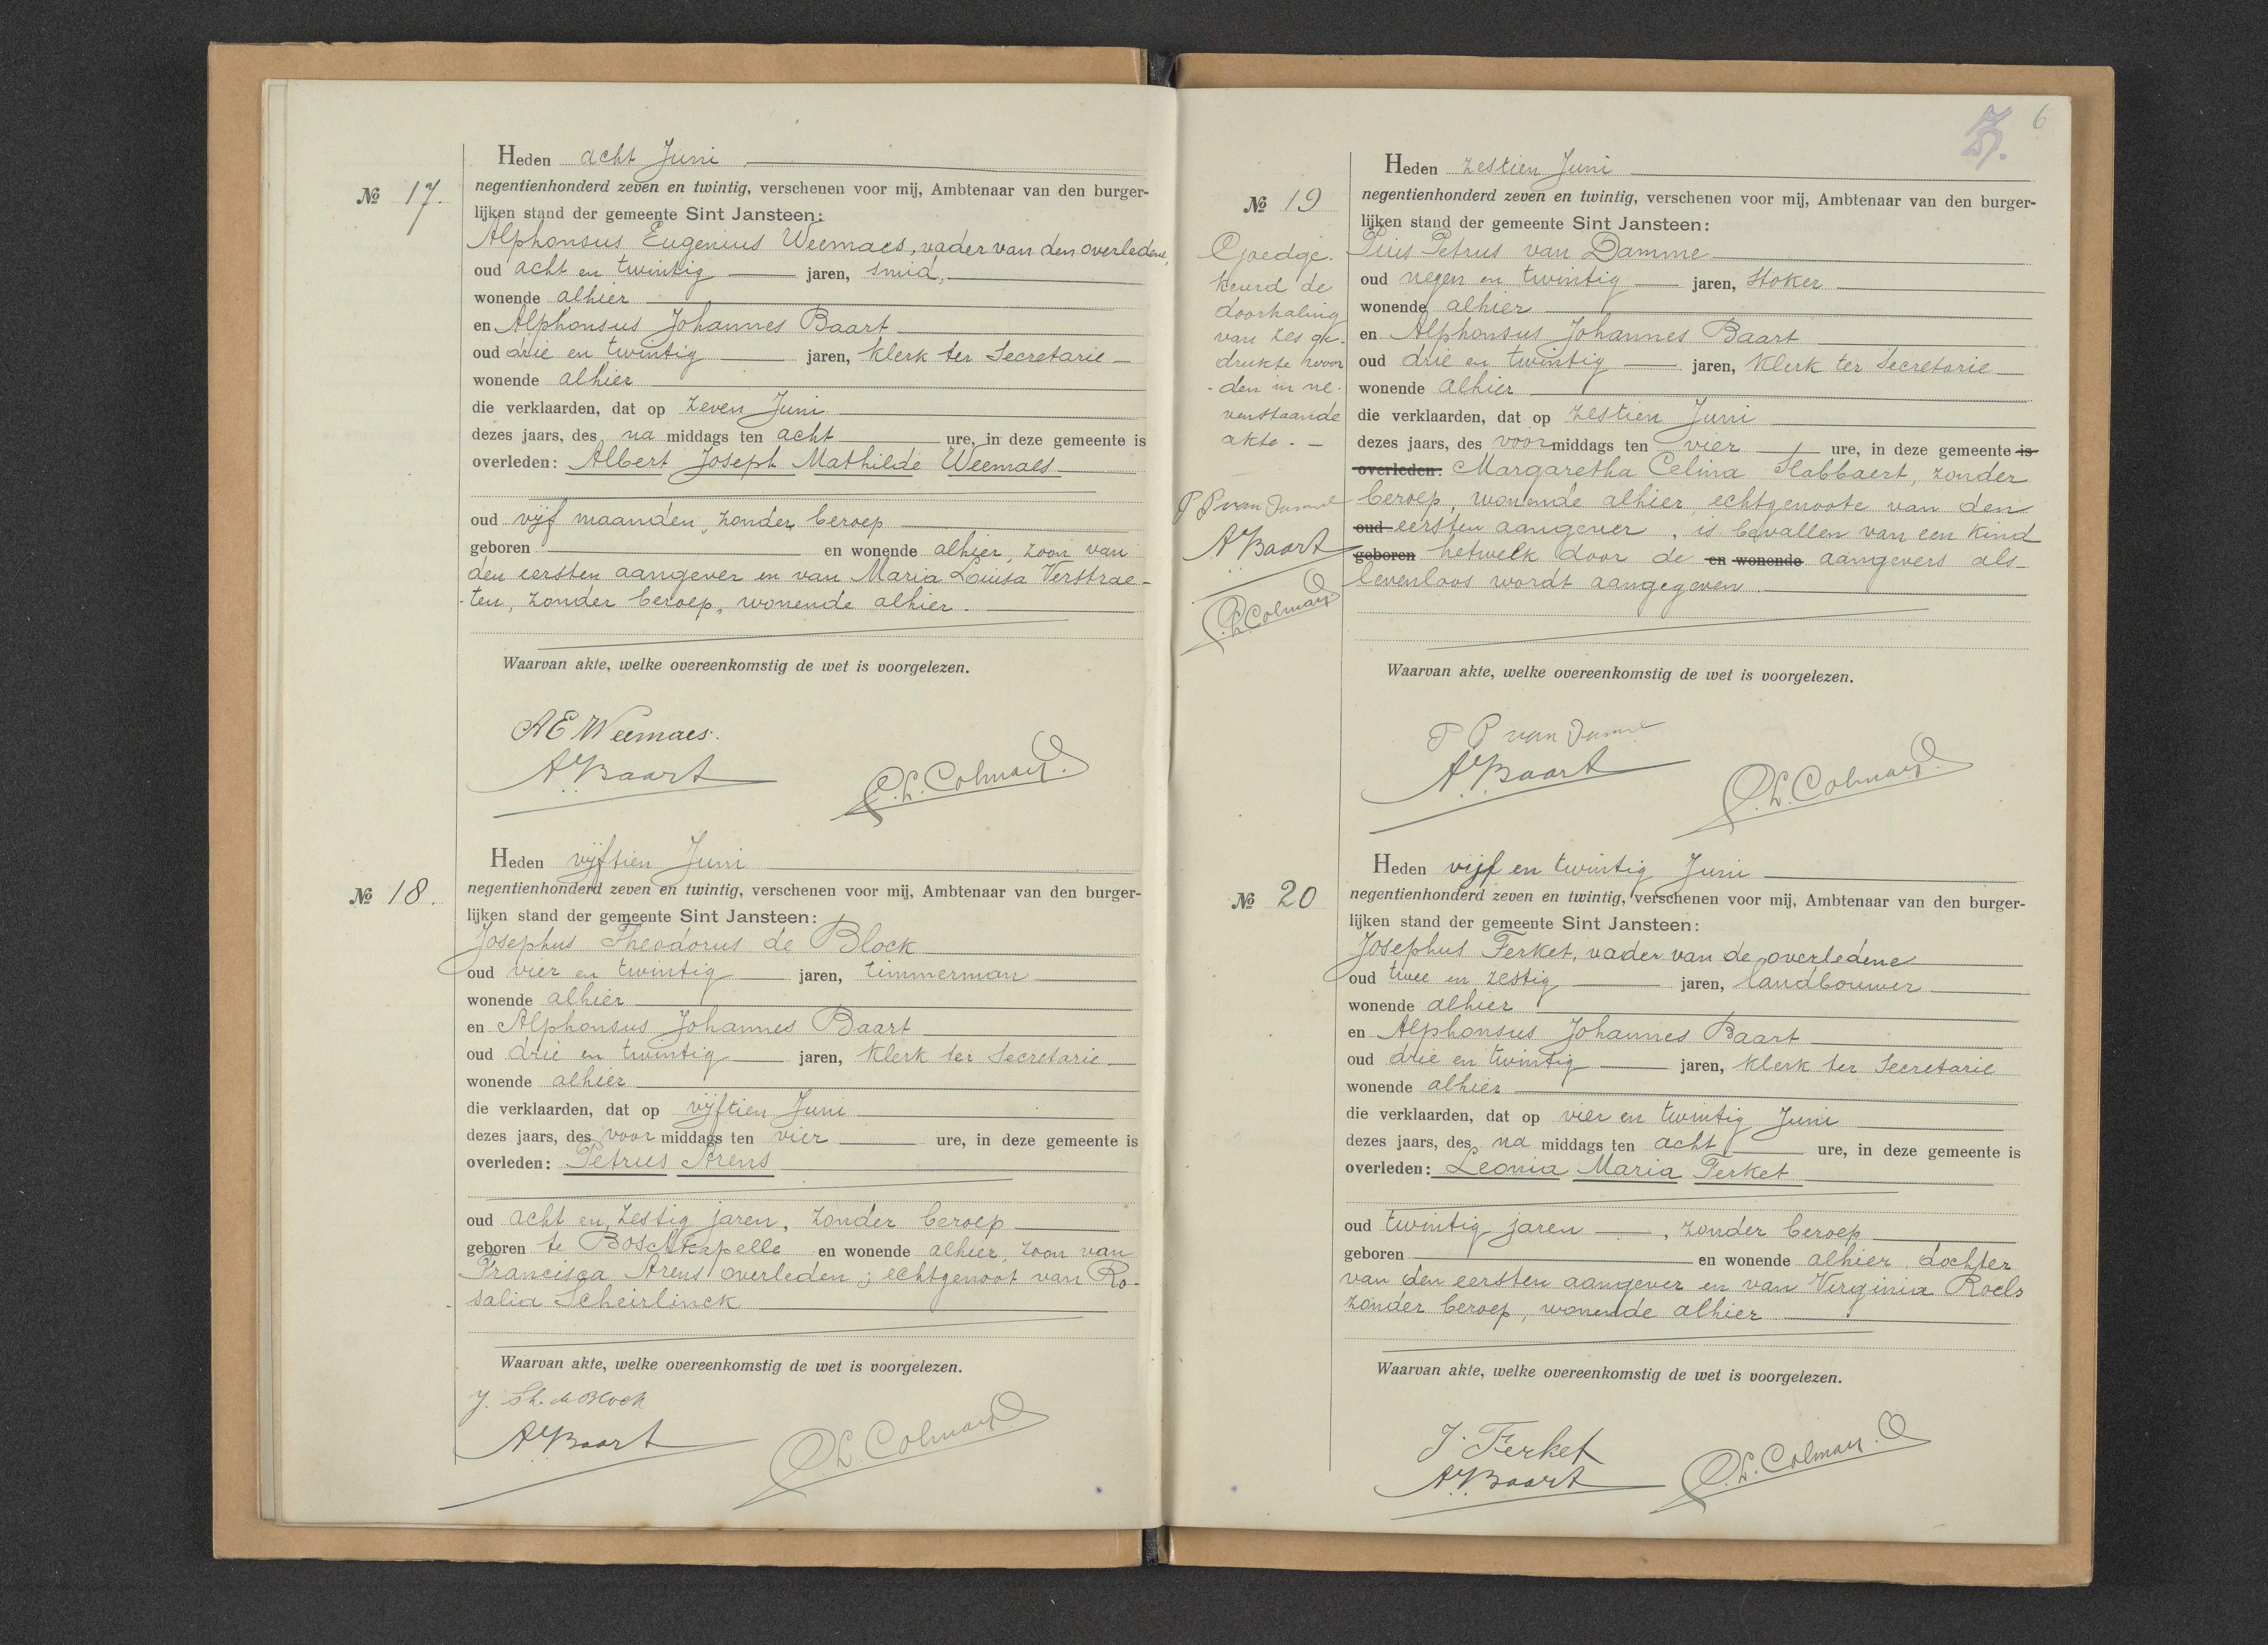 Heden acht Juni
№ 17.
negentienhonderd zeven en twintig, verschenen voor mij, Ambtenaar van den burger-
lijken stand der gemeente Sint Jansteen:
Alphonsus Eugenius Weemaes, vader van den overledene,
oud acht en twintig jaren, smid,
wonende alhier
en Alphonsus Johannes Baart
oud drie en twintig jaren, klerk ter Secretarie
wonende alhier
die verklaarden, dat op zeven Juni
dezes jaars, des na middags ten acht ure, in deze gemeente is
overleden: Albert Joseph Mathilde Weemaes
oud vijf maanden, zonder beroep
geboren en wonende alhier, zoon van
den eersten aangever en van Maria Louisa Verstrae-
-ten, zonder beroep, wonende alhier.
Waarvan akte, welke overeenkomstig de wet is voorgelezen.
AE Weemaes.
AJ Baart
P.L. Colman
Heden vijftien Juni
№ 18.
negentienhonderd zeven en twintig, verschenen voor mij, Ambtenaar van den burger-
lijken stand der gemeente Sint Jansteen:
Josephus Theodorus de Block
oud vier en twintig jaren, timmerman
wonende alhier
en Alphonsus Johannes Baart
oud drie en twintig jaren, klerk ter Secretarie
wonende alhier
die verklaarden, dat op vijftien Juni
dezes jaars, des voor middags ten vier ure, in deze gemeente is
overleden: Petrus Arens
oud acht en zestig jaren, zonder beroep
geboren te Boschkapelle en wonende alhier, zoon van
Francisca Arens overleden; echtgenoot van Ro-
salia Scheirlinck
Waarvan akte, welke overeenkomstig de wet is voorgelezen.
J. Th. de Block
AJ Baart
P.L. Colman
6
Heden zestien Juni
№ 19
negentienhonderd zeven en twintig, verschenen voor mij, Ambtenaar van den burger-
lijken stand der gemeente Sint Jansteen:
Pius Petrus van Damme
oud negen en twintig jaren, stoker
wonende alhier
en Alphonsus Johannes Baart
oud drie en twintig jaren, klerk ter Secretarie
wonende alhier
die verklaarden, dat op zestien Juni
dezes jaars, des voormiddags ten vier ure, in deze gemeente is
overleden: Margaretha Celina Stabbaert, zonder
beroep, wonende alhier, echtgenoote van den
oud eersten aangever, is bevallen van een kind
geboren hetwelk door de en wonende aangevers als
levenloos wordt aangegeven
Goedge-
keurd de
doorhaling
van zes ge-
drukte woor
-den in ne-
venstaande
akte. -
P P van Damme
AJ Baart
P.L. Colman
Waarvan akte, welke overeenkomstig de wet is voorgelezen.
P P van Damme
AJ Baart
P.L. Colman
Heden vijf en twintig Juni
№ 20
negentienhonderd zeven en twintig, verschenen voor mij, Ambtenaar van den burger-
lijken stand der gemeente Sint Jansteen:
Josephus Ferket, vader van de overledene
oud twee en zestig jaren, landbouwer
wonende alhier
en Alphonsus Johannes Baart
oud drie en twintig jaren, klerk ter Secretarie
wonende alhier
die verklaarden, dat op vier en twintig Juni
dezes jaars, des na middags ten acht ure, in deze gemeente is
overleden: Leonia Maria Ferket
oud twintig jaren, zonder beroep
geboren en wonende alhier, dochter
van den eersten aangever en van Virginia Roels
zonder beroep, wonende alhier
Waarvan akte, welke overeenkomstig de wet is voorgelezen.
J. Ferket
AJ Baart
P.L. Colman